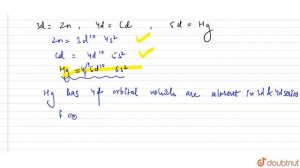 3d = Zn , 4d = Cd , 5d = Hg
Zn = 3d¹⁰ 4s²
Cd = 4d¹⁰ 5s²
Hg = 4f¹⁴ 5d¹⁰ 6s²
Hg has 4f orbital which are absent in 3d & 4d series
f
doubtnut